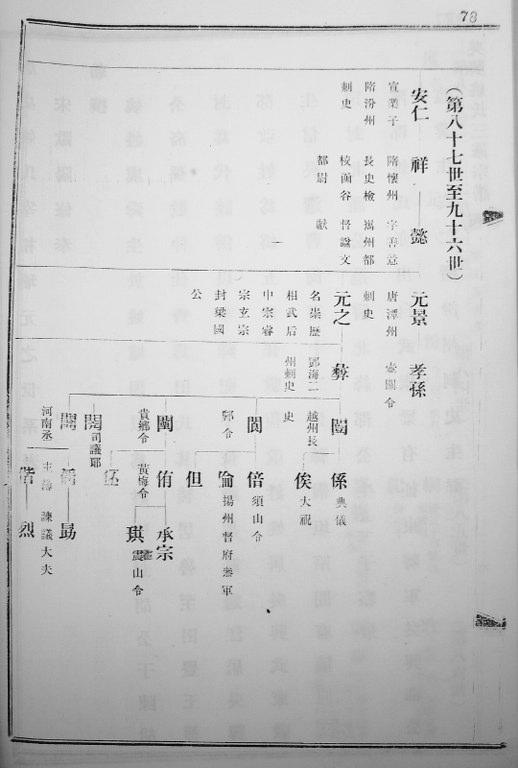 78
(第八十七世至九十六世)
安仁
宣業子
隋汾州
刺史
祥
隋懷州
長史檢
校函谷
都尉
懿
字善意
嶲州都
督諡文
獻
元景
唐潭州
刺史
孝孫
壺關令
元之
名崇歷
相武后
中宗睿
宗玄宗
封梁國
公
彝
鄧海二
州刺史
闓
越州長
史
係
典儀
俟
大祝
閎
鄢令
倍
須山令
倫
揚州督府叅軍
但
闈
貴鄉令
侑
黃梅令
承宗
琪
靈山令
司議郎
伾
河南丞
主簿
諫議大夫
勗
偕
烈